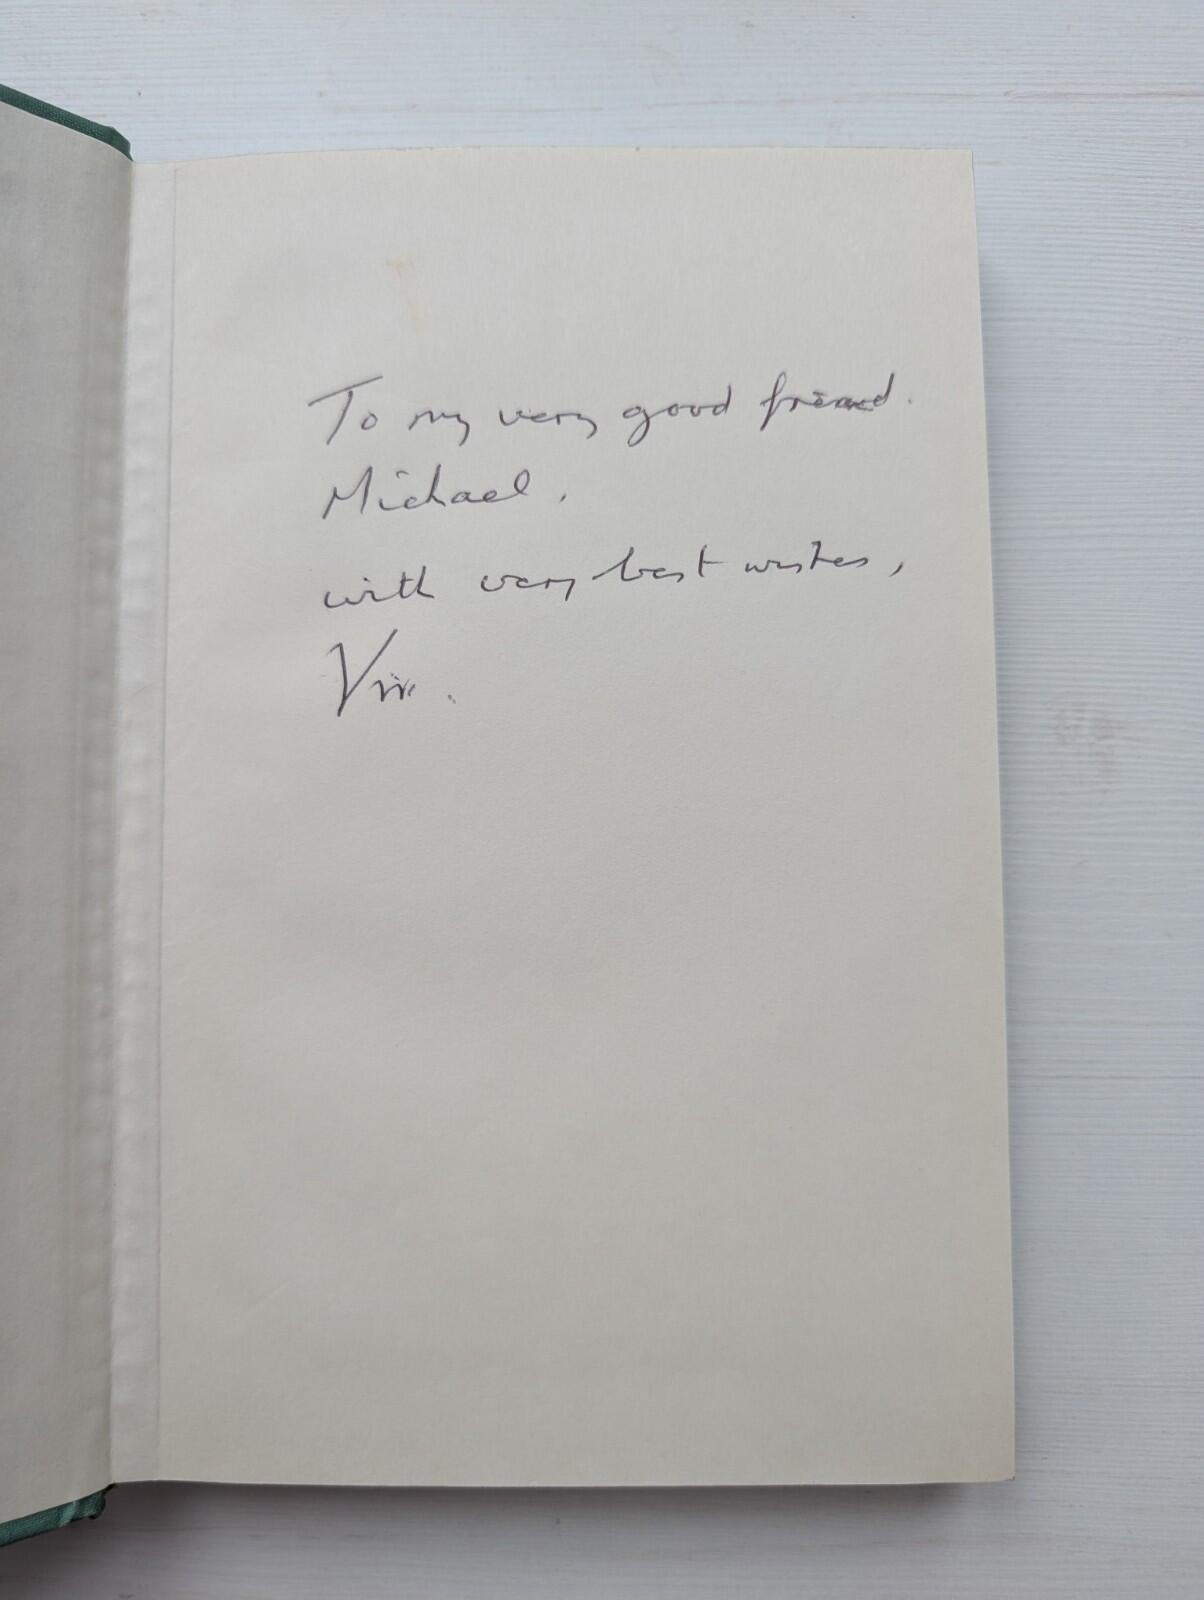 To my very good friend.
Michael,
with very best wishes,
Viv.